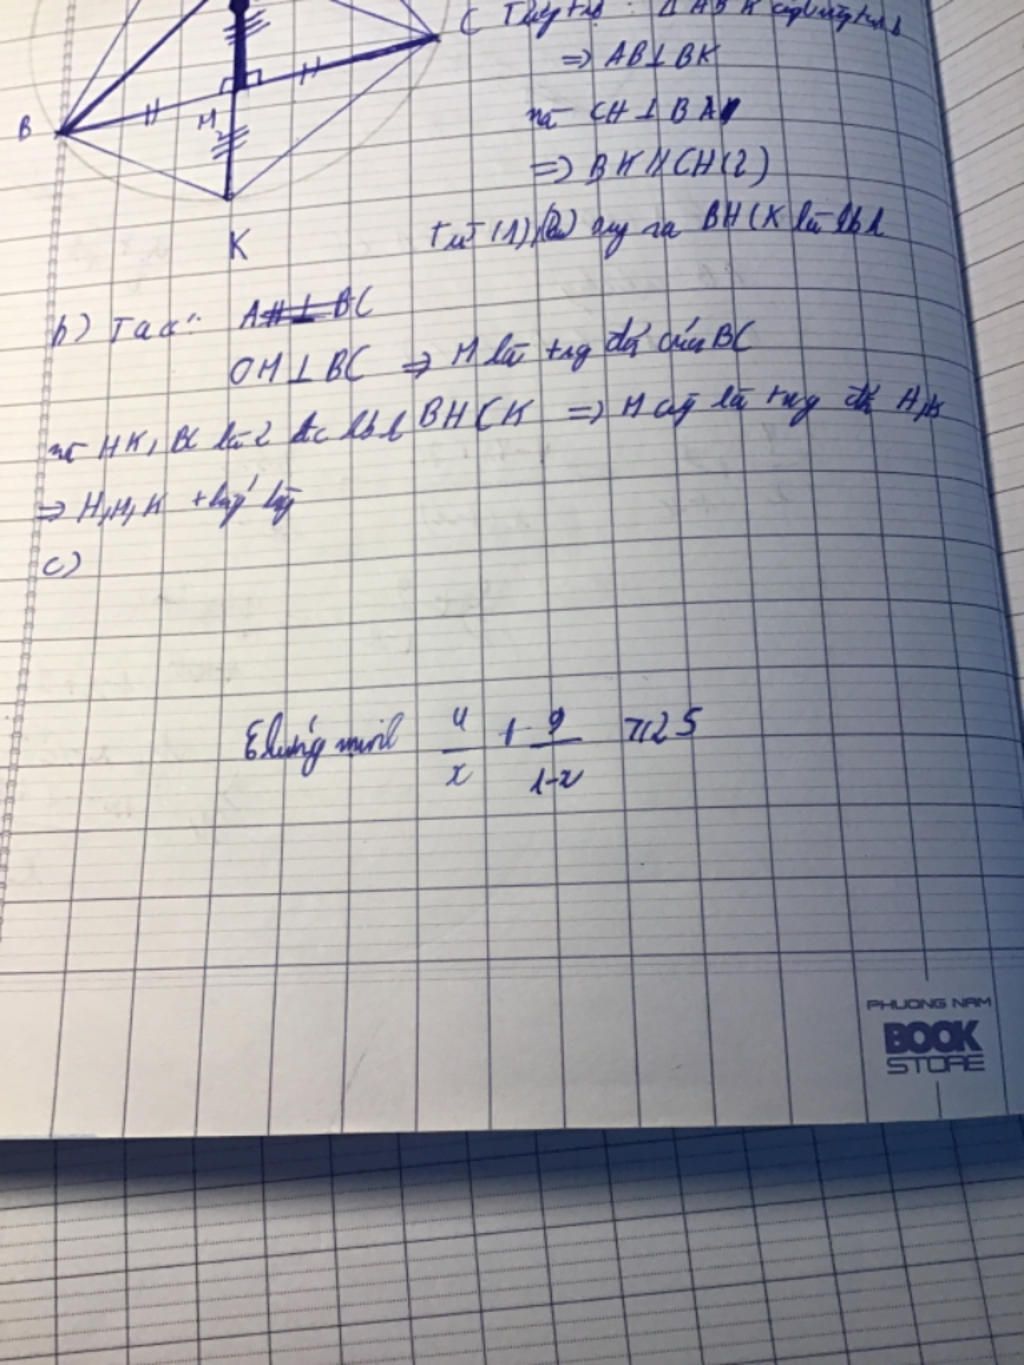 C Tương tự: Δ ABK cg vuông tại B
=> AB⊥BK
mà CH⊥BA
B
M
=> BK//CH(2)
K
Từ (1),(2) suy ra BHCK là hbh
b) Ta có: AH⊥BC
OM⊥BC => M là trg đ' của BC
mà HK, BC là 2 đc hbh BHCK => M cg là trng đ' H,K
=> H,M,K thẳng
c)
Chứng minh 4/x + 9/1-x ≥ 25
PHUONG NAM
BOOK
STORE